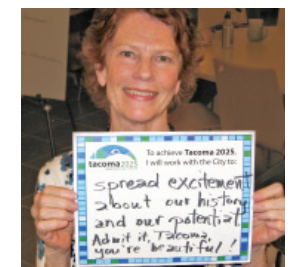 To achieve Tacoma 2025,
I will work with the City to:
tacoma2025
spread excitement
about our history
and our potential
Admit it, Tacoma,
you're beautiful!